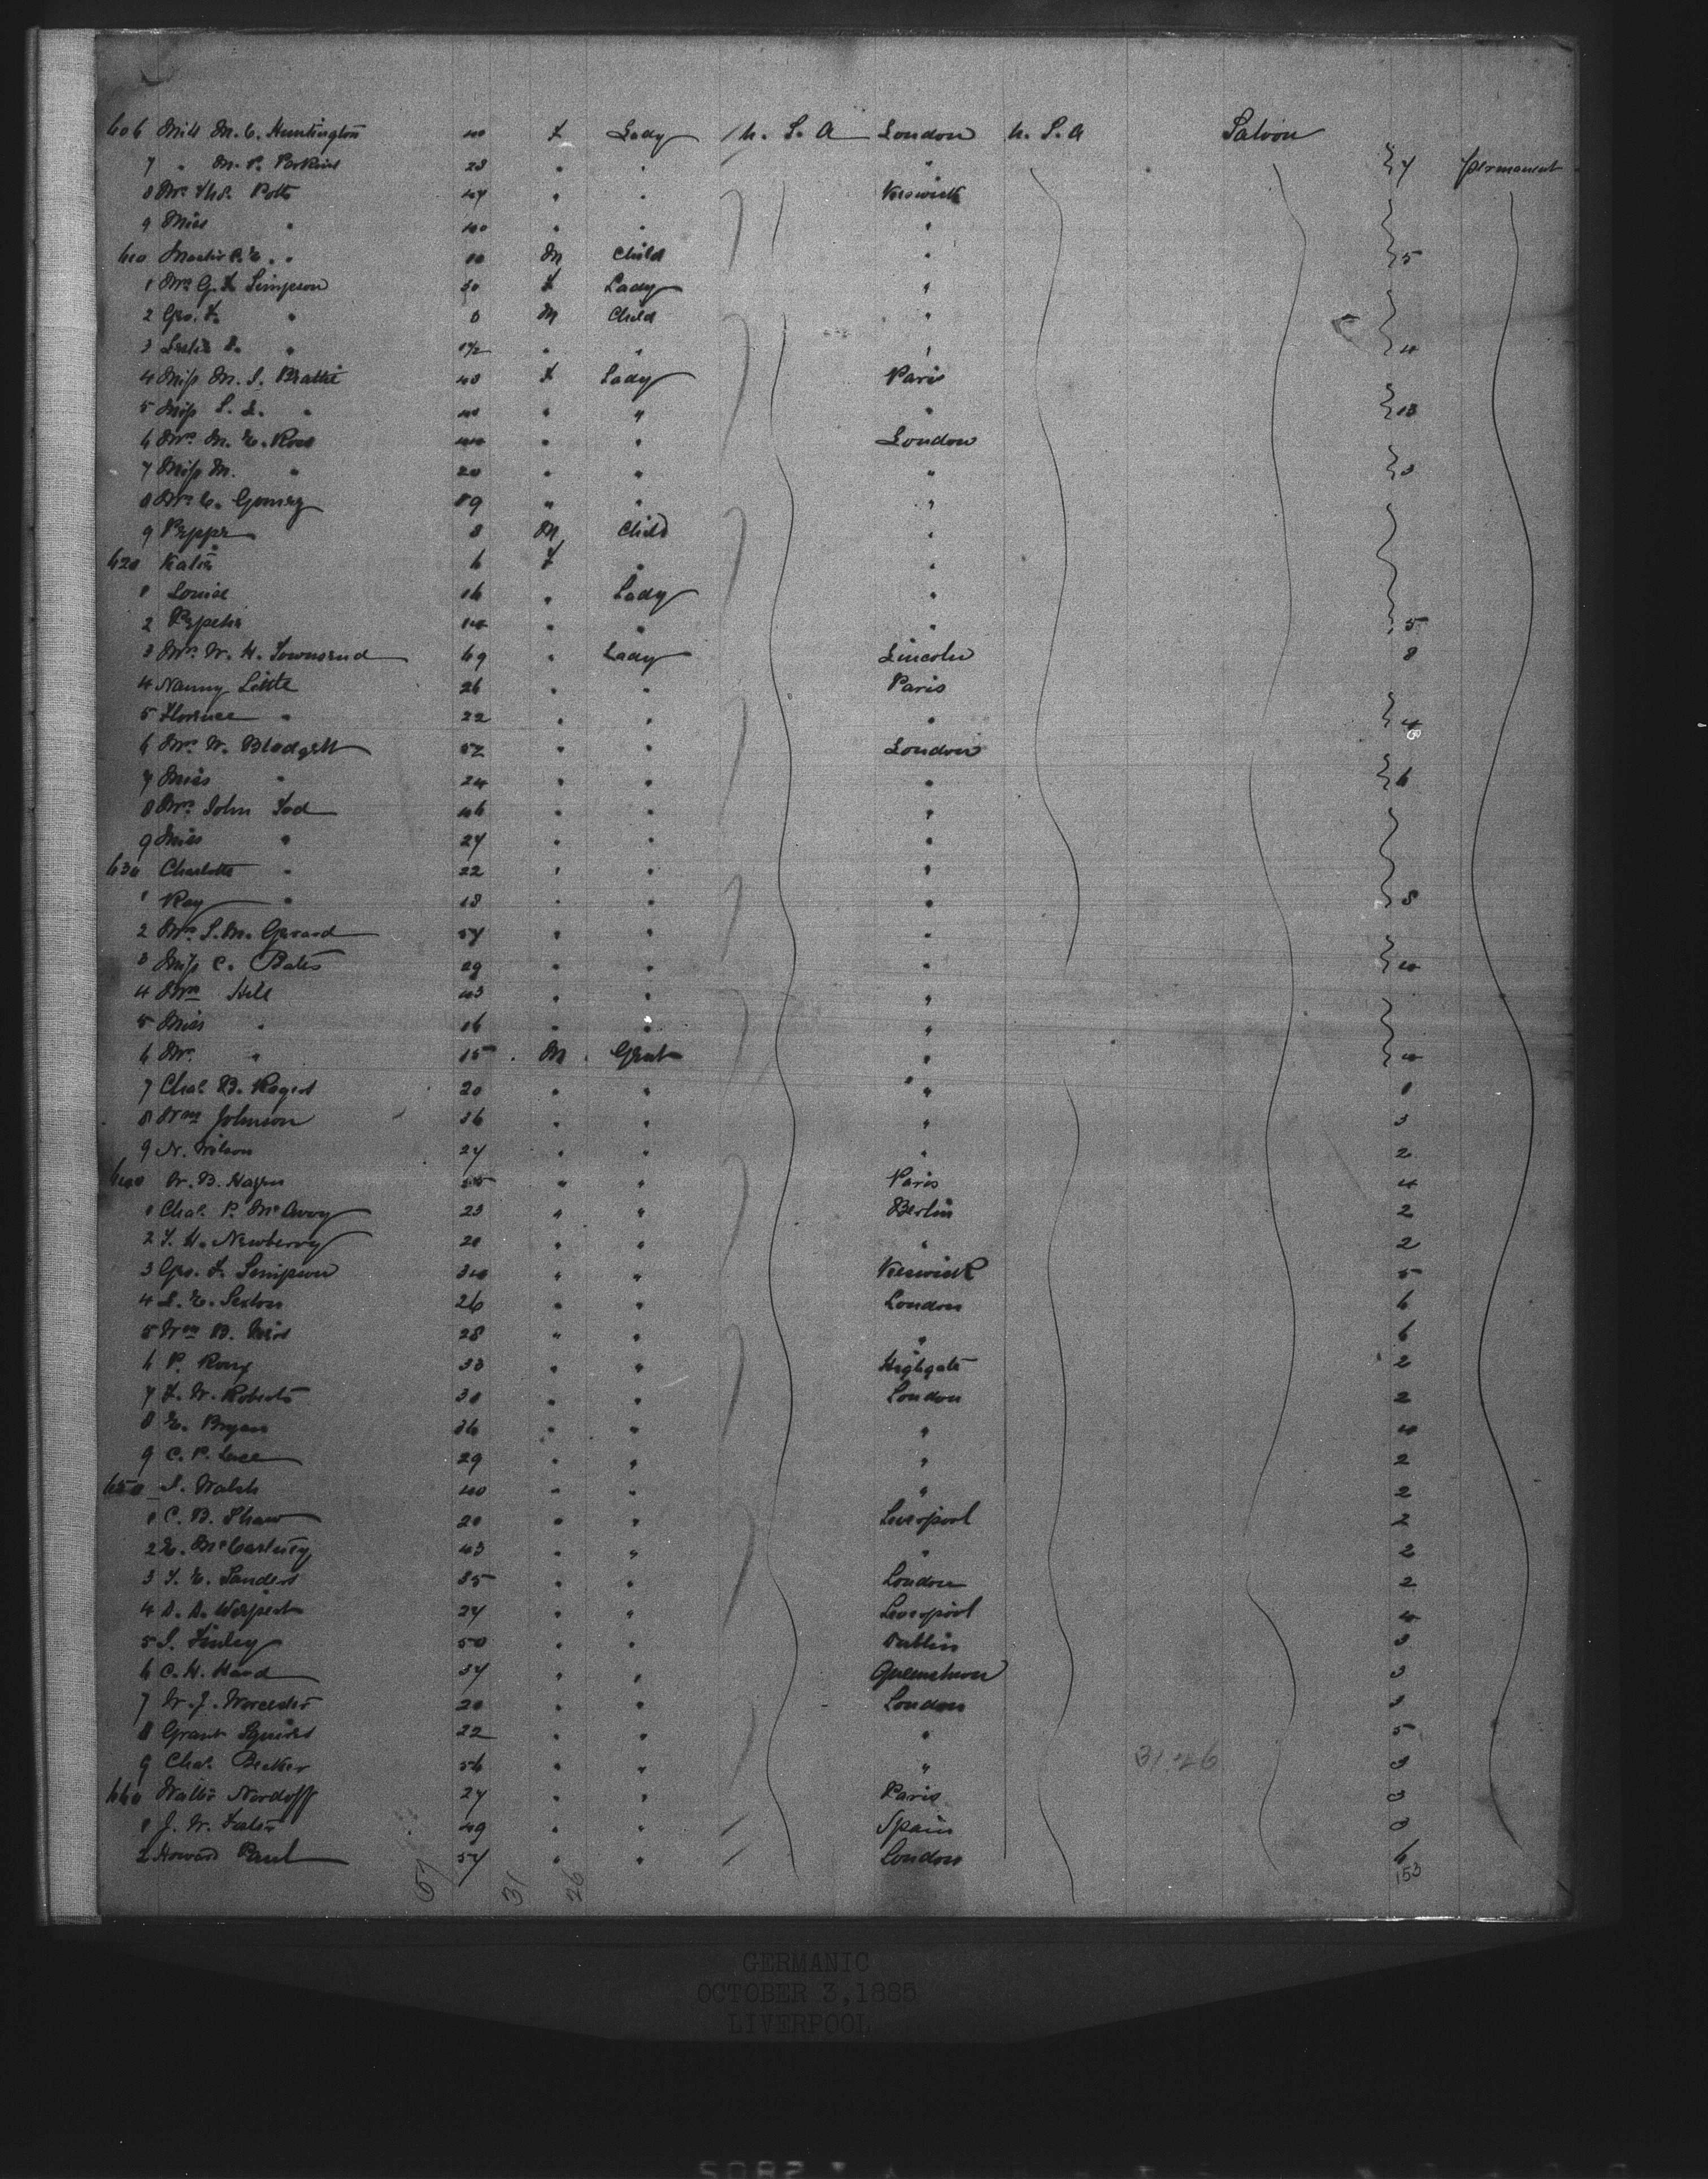 606 Miss M. C. Huntington 40 F Lady U. S. A London U. S. A Saloon
7 " M. P. Perkins 28 " " " 7 permanent
8 Mrs Thos. Potts 47 " " Keswick
9 Miss " 40 " " "
610 Master P. E. " 10 M Child " 5
1 Mrs G. F. Simpson 30 F Lady "
2 Geo. F. " 8 M Child "
3 Leslie S. " 1½ " " " 4
4 Miss M. S. Beattie 48 F Lady Paris
5 Miss L. L. " 40 " " " 13
6 Mrs M. E. Rose 44 " " London
7 Miss M. " 20 " " " 3
8 Mrs C. Gomez 39 " " "
9 Peppe 8 M Child "
620 Katie 6 F " "
1 Louise 16 " Lady "
2 Pepeta 14 " " " 5
3 Mrs W. H. Townsend 69 " Lady Lincoln 8
4 Nanny Little 26 " " Paris
5 Florence " 22 " " " 4
6 Mrs W. Blodgett 52 " " London
7 Miss " 24 " " " 6
8 Mrs John Tod 46 " " "
9 Miss " 27 " " "
630 Charlotte " 22 " " "
1 Ray " 18 " " " 8
2 Mrs S. M. Gerard 57 " " "
3 Miss C. Bates 29 " " " 4
4 Mrs Hill 43 " " "
5 Miss " 16 " " "
6 Mr. " 15 M Gent " 4
7 Chas. B. Rogers 20 " " " 1
8 Wm Johnson 36 " " " 3
9 N. Wilson 27 " " " 2
640 W. B. Hazen " " Paris 4
1 Chas. P. McAvoy 23 " " Berlin 2
2 T. H. Newberry 20 " " " 2
3 Geo. F. Simpson 34 " " Keswick 5
4 L. E. Sexton 26 " " London 6
5 Wm B. 28 " " " 6
6 P. Roux 33 " " Highgate 2
7 F. W. Roberts 30 " " London 2
8 E. Bryan 36 " " " 4
9 C. P. Luce 29 " " " 2
650 S. Walsh 40 " " " 2
1 C. B. Shaw 20 " " Liverpool 2
2 E. McCartney 43 " " " 2
3 T. E. Sanders 35 " " London 2
4 A. A. 27 " " Liverpool 4
5 S. Finley 50 " " Dublin 3
6 C. H. Hand 37 " " Queenstown 3
7 W. J. Worcester 20 " " London 3
8 Grant Squires 22 " " " 5
9 Chas. Becker 56 " " " 31 26 3
660 Walter Nordoff 27 " " Paris 3
1 J. W. 49 " " Spain 3
2 Howard Paul 57 " " London 6
57 31 26 153
GERMANIC
OCTOBER 3,1885
LIVERPOOL